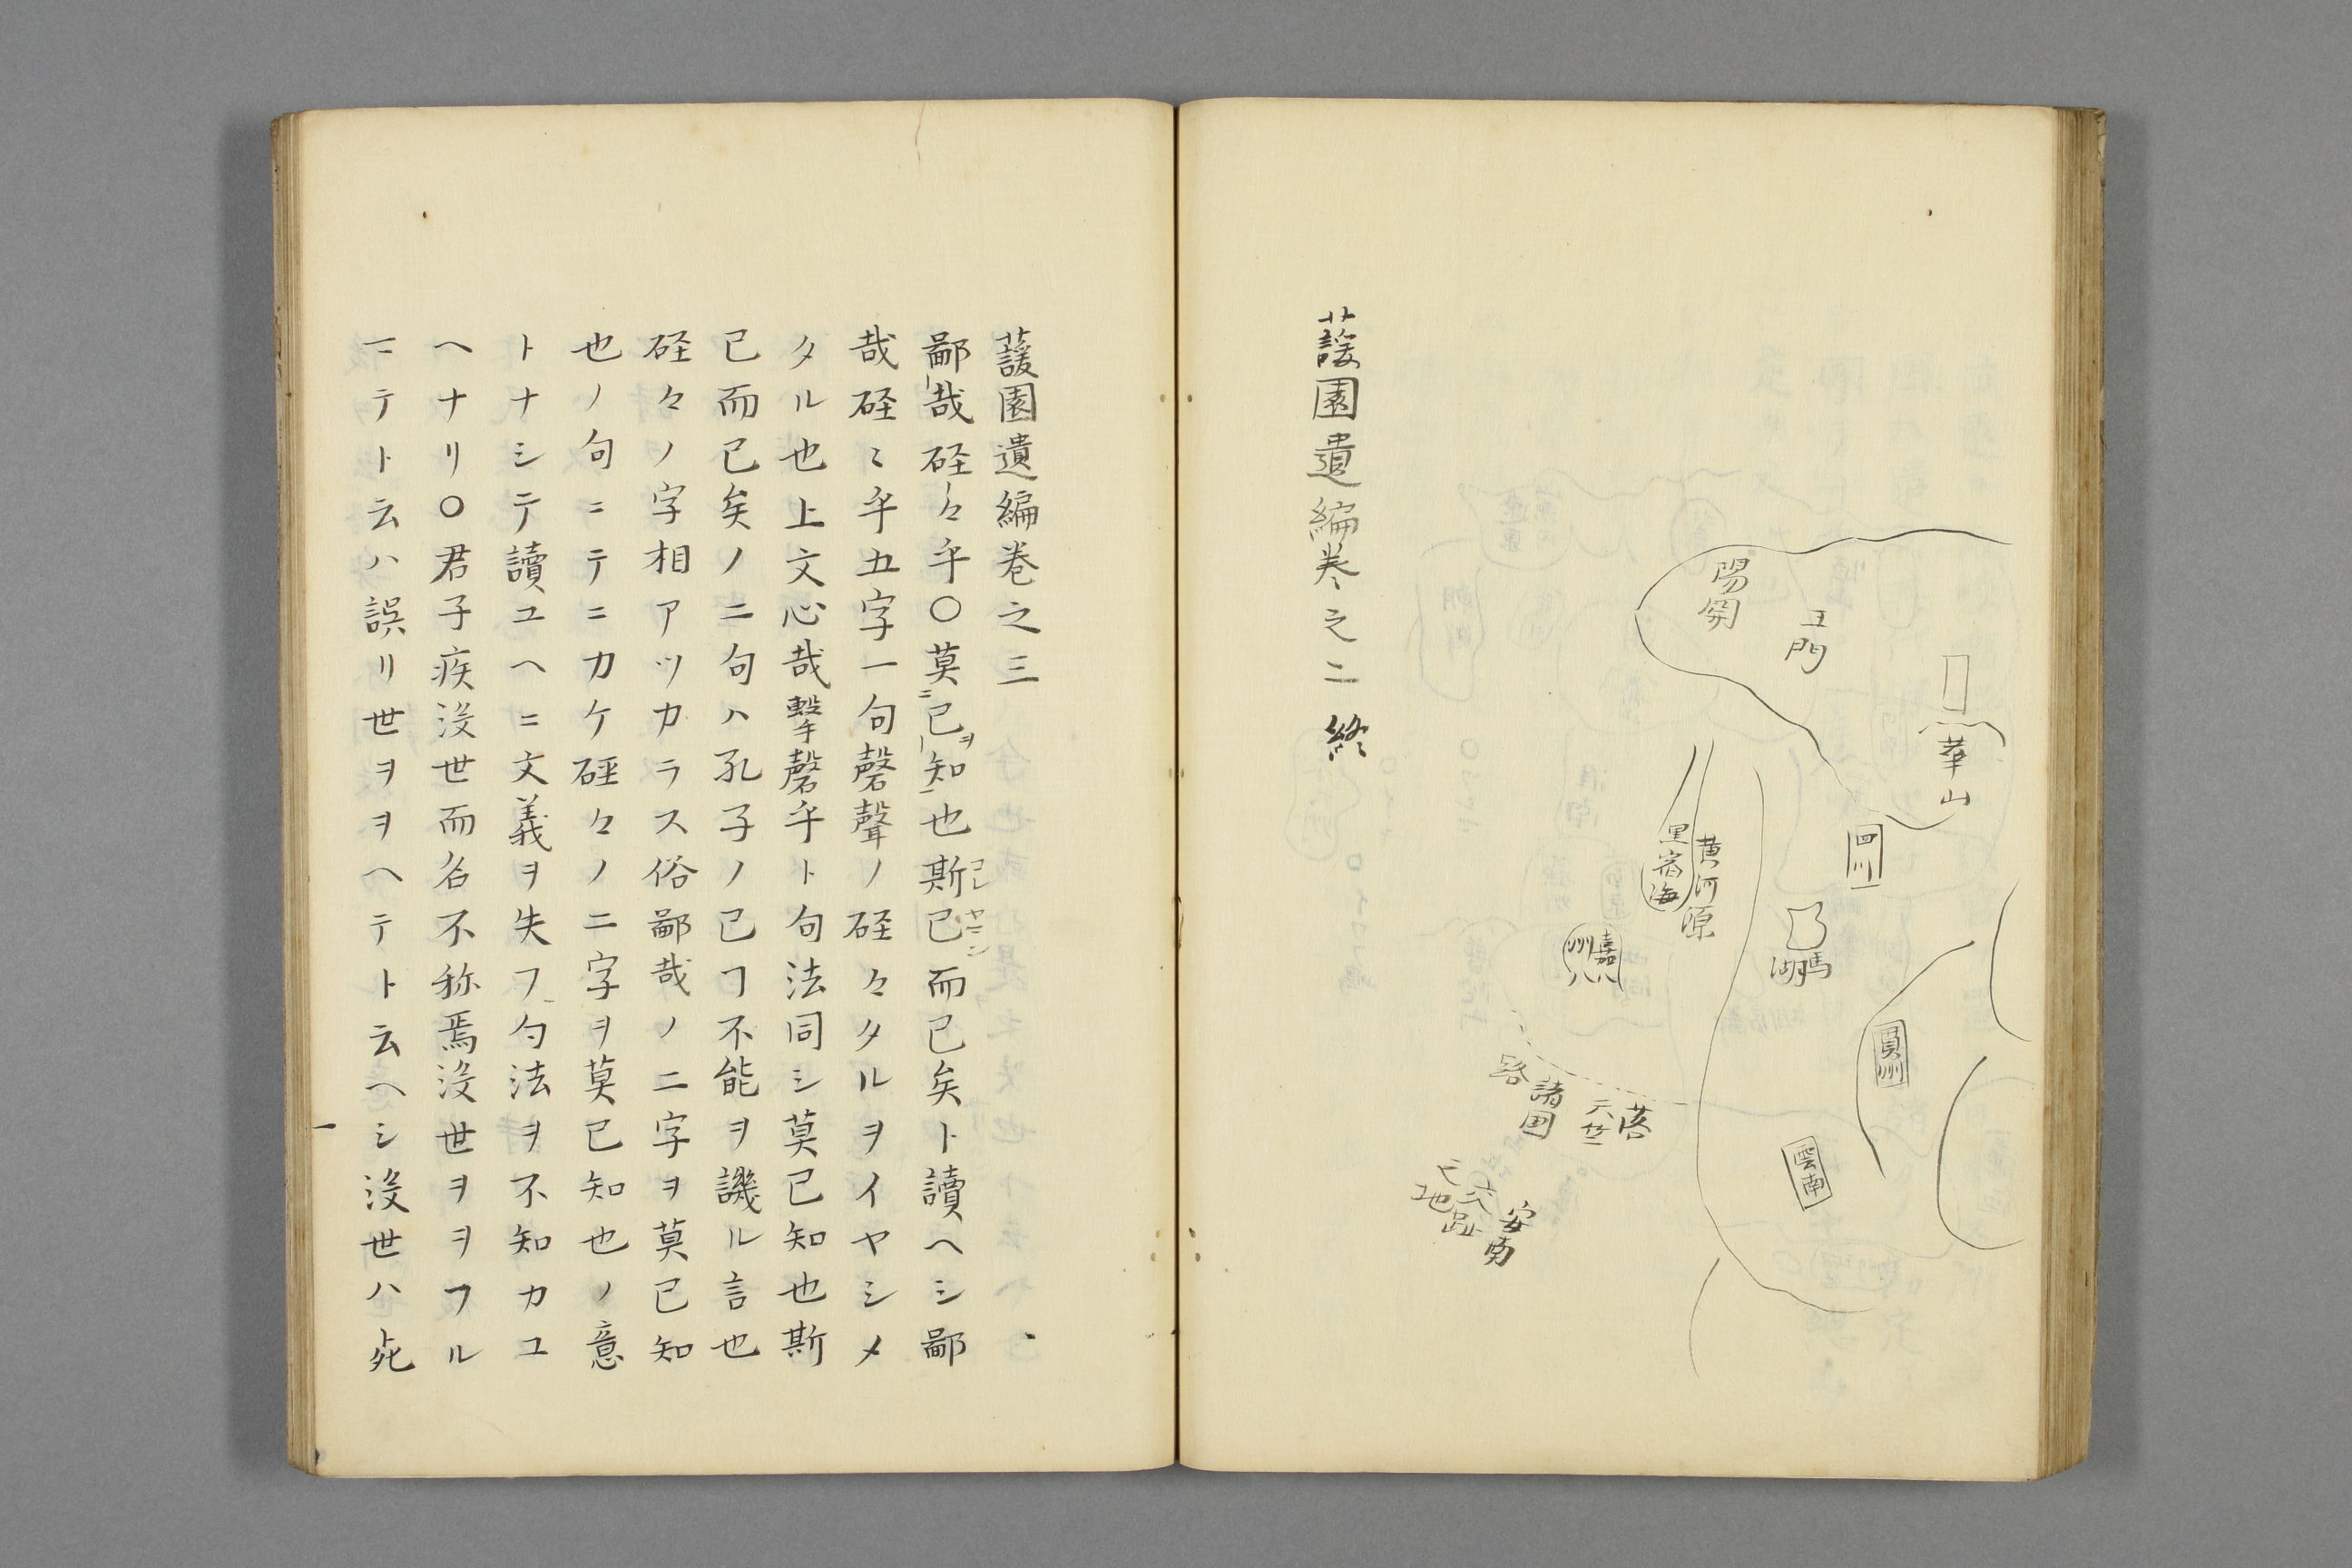 華山
玉門
陽関
四川
馬湖
黄河源
星宿海
嘉州
貢州
雲南
諸国
安南
交趾
蘐園遺編巻之二 終
蘐園遺編巻之三
鄙哉硜々乎〇莫ニ已ヲ知也斯コレ已ヤマン而已矣ト讀ヘシ鄙
哉硜〻乎五字一句磬聲ノ硜々タルヲイヤシメ
タル也上文心哉撃磬乎ト句法同シ莫已知也斯
已而已矣ノ二句ハ孔子ノ已ヿ不能ヲ譏ル言也
硜々ノ字相アツカラス俗鄙哉ノ二字ヲ莫已知
也ノ句ニテニカケ硜々ノ二字ヲ莫已知也ノ意
トナシテ讀ユヘニ文義ヲ失フ勺法ヲ不知カユ
ヘナリ〇君子疾没世而名不称焉没世ヲヲフル
マテト云ハ誤リ世ヲヲヘテト云ヘシ没世ハ死